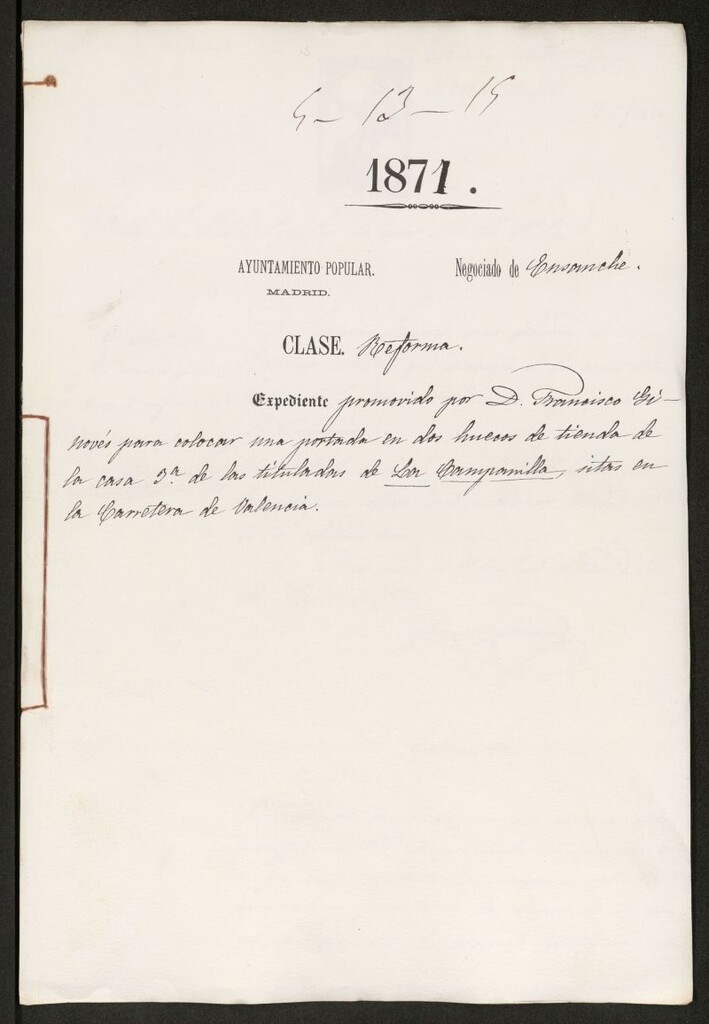 5-13-15
1871.
AYUNTAMIENTO POPULAR.
MADRID.
Negociado de Ensanche.
CLASE. Reforma.
Expediente promovido por D. Francisco Gi-
novés para colocar una portada en dos huecos de tienda de
la casa 3ª de las tituladas de La Campanilla, sitas en
la Carretera de Valencia.